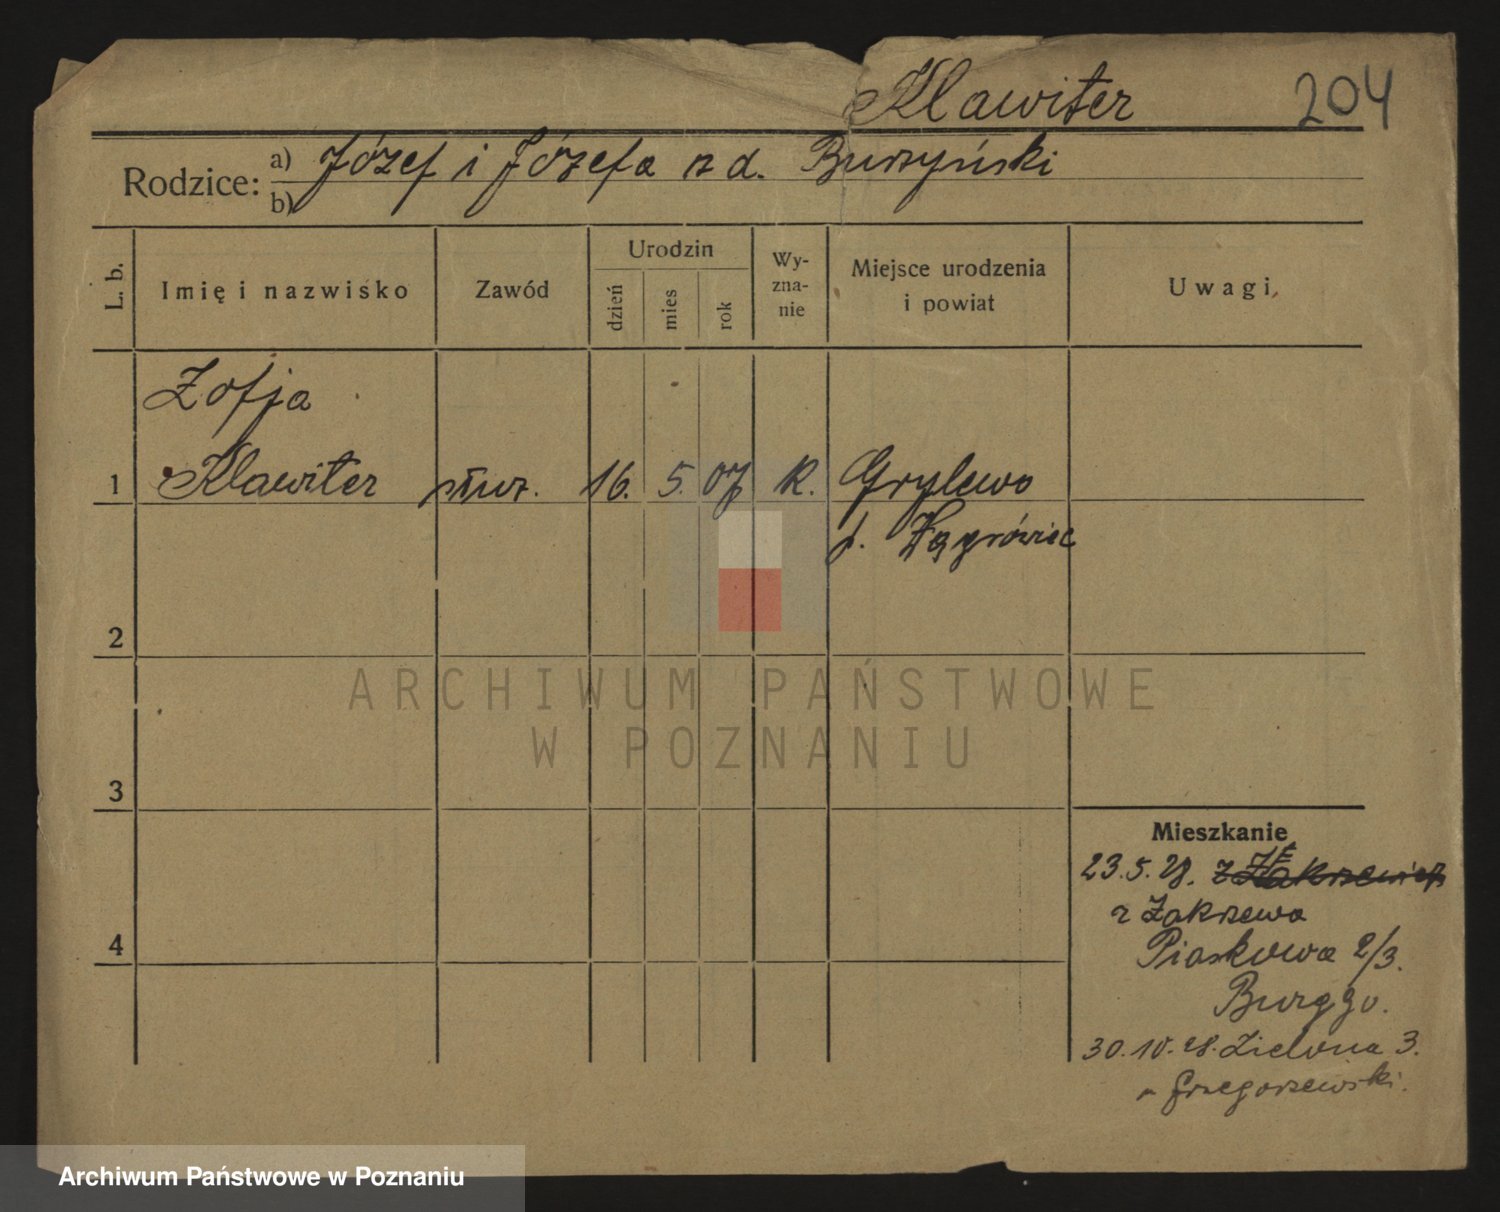 Klawiter 204
Rodzice: a) Józef i Józefa z d. Burzyński
b)
L. b. Imię i nazwisko Zawód Urodzin dzień mies rok Wy-zna-nie Miejsce urodzenia i powiat Uwagi
Zofja
1 Klawiter służ. 16. 5. 07 k. Grylewo
p. Wągrówiec
2
ARCHIWUM PAŃSTWOWE
W POZNANIU
3
Mieszkanie
23.5.28. z Zakrzewie
z Zakrzewa
Piaskowa 2/3.
4
30.10.28. Zielona 3.
Grzegorzewski.
Archiwum Państwowe w Poznaniu